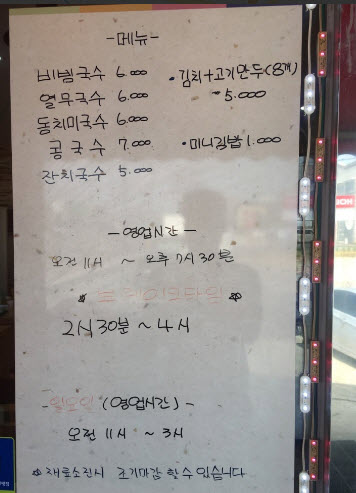 -메뉴-
비빔국수 6.000
열무국수 6.000
동치미국수 6.000
콩국수 7.000
잔치국수 5.000
•김치+고기만두(8개)
~5.000
•미니김밥 1.000
-영업시간-
오전 11시 ~ 오후 7시 30분
브레이크타임
2시 30분 ~ 4시
-일요일(영업시간)-
오전 11시 ~ 3시
재료소진시 조기마감 할 수 있습니다